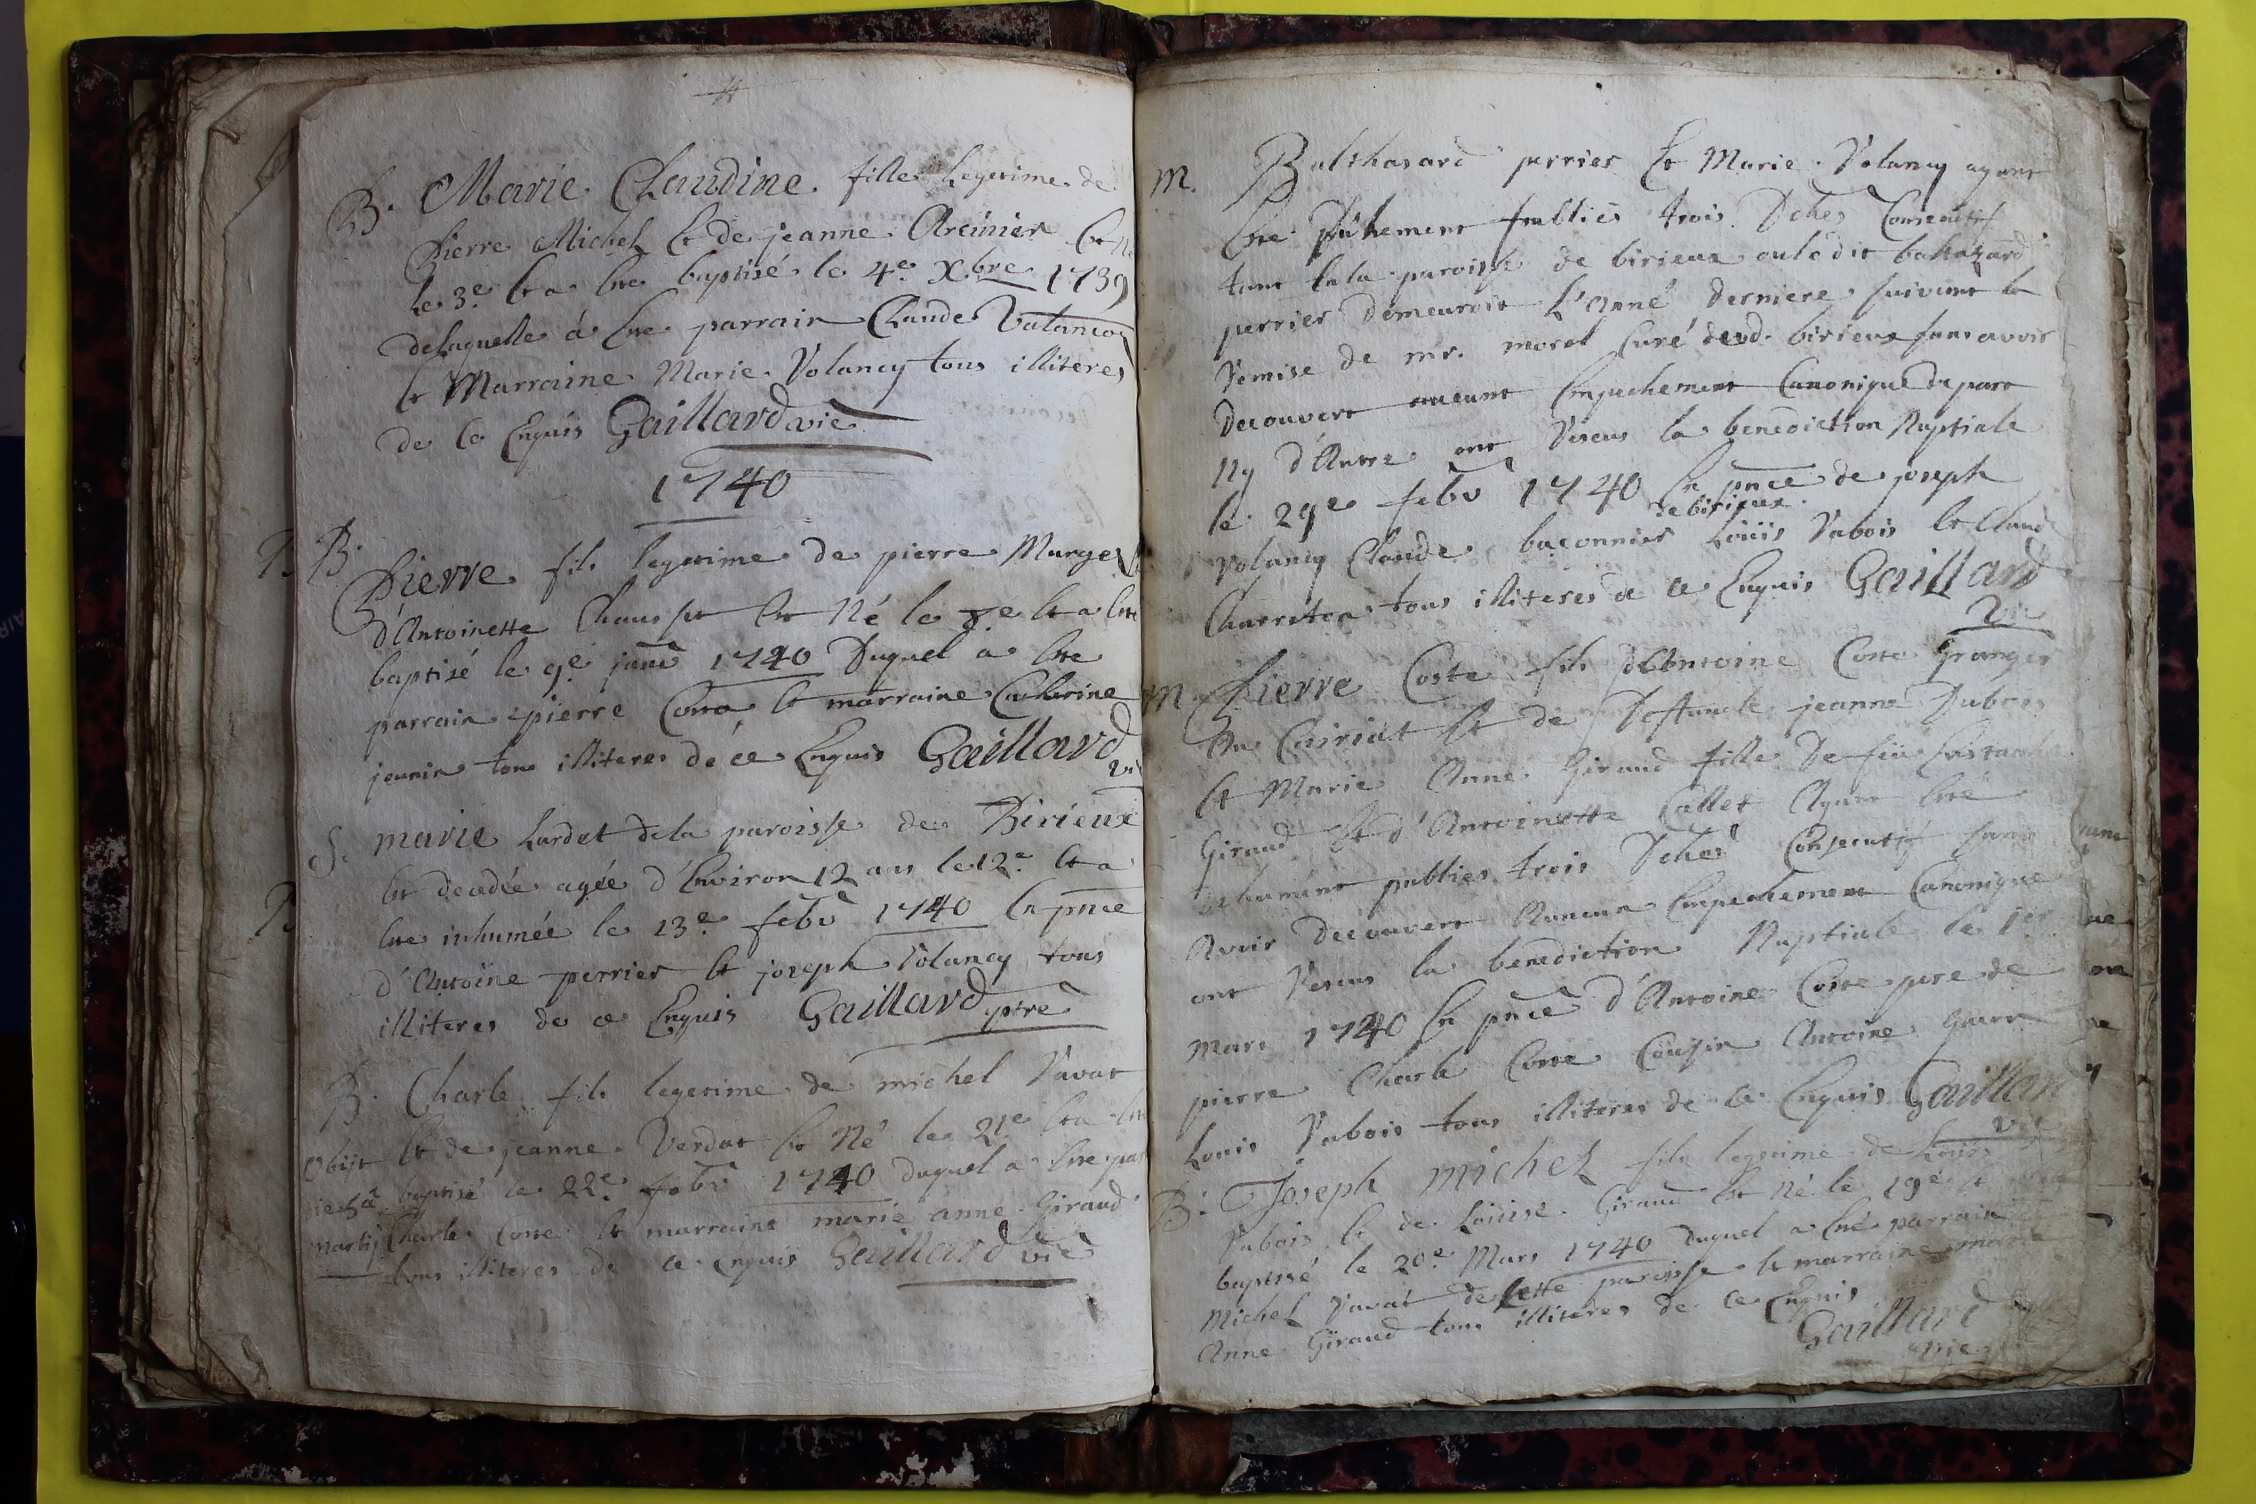 B. Marie Claudine fille legetime de
Pierre Michel et de jeanne
le 3e et a ete baptisé le 4e Xbre 1739
delaquelle á ete parrain Claude
et Marraine Marie Volancy tous illiteres
de ce Enquis Gaillard vic
1740
B. Pierre fils legetime de pierre
d'Antoinette est Né le 8e et a ete
baptisé le 9e janv 1740 Duquel a ete
parrain pierre Coste et marraine Catherine
jeunin tous illiteres de ce Enquis Gaillard vic
S. marie Lardet dela paroisse de Birieux
est decedée agée d'Environ 12 ans le 12e et a
ete inhumée le 13e febv 1740 En pnce
d'Antoine perrier et joseph Volancy tous
illiteres de ce Enquis Gaillard ptre
B. Charle fils legetime de michel Vavat
Obijt et de jeanne Verdat est Né le 21e et a ete
baptisé le 22e febv 1740 duquel a ete par
martij Charle Coste et marraine marie anne Giraud
tous illiteres de ce enquis Gaillard vic
M. Balthasard perrier et Marie Volancy ayant
ete publiés trois Dches Consecutifs
tant en la paroisse de birieux ou le dit baltazard
perrier demeuroit l'anné derniere suivant la
Remise de mr. morel Curé dud. birieux sans avoir
decouvert aucunt Empechement Canonique de part
Ny d'Autre ont Receus la benediction Nuptiale
le 29e febv 1740 En pnce de joseph
de birieux
Volancy Claude baconnier Loüis Vabois et Claude
Charreton tous illiteres de ce Enquis Gaillard
vic
M. Pierre Coste fils d'Antoine Coste Granger
Du et de Deffuncte jeanne Dubois
et Marie Anne Giraud fille De feu
Giraud et d'Antoinette Callet Ayant eté
publies trois Dches Consecutifs sans
Avoir decouvert Aucun Empechement Canonique
ont Receus la benediction Nuptiale le 1er
Mars 1740 En pnce d'Antoine Coste pere de
pierre Charle Coste Cousin Antoine
Louis Vabois tous illiteres de ce Enquis Gaillard
vic
B. Joseph michel fils legetime de Louis
Vabois et de Loüise Giraud est Né le 19e et
baptisé le 20e Mars 1740 duquel a eté parrain
Michel Vavat de cette paroisse et marraine marie
Anne Giraud tous illiteres de ce Enquis
Gaillard
vic